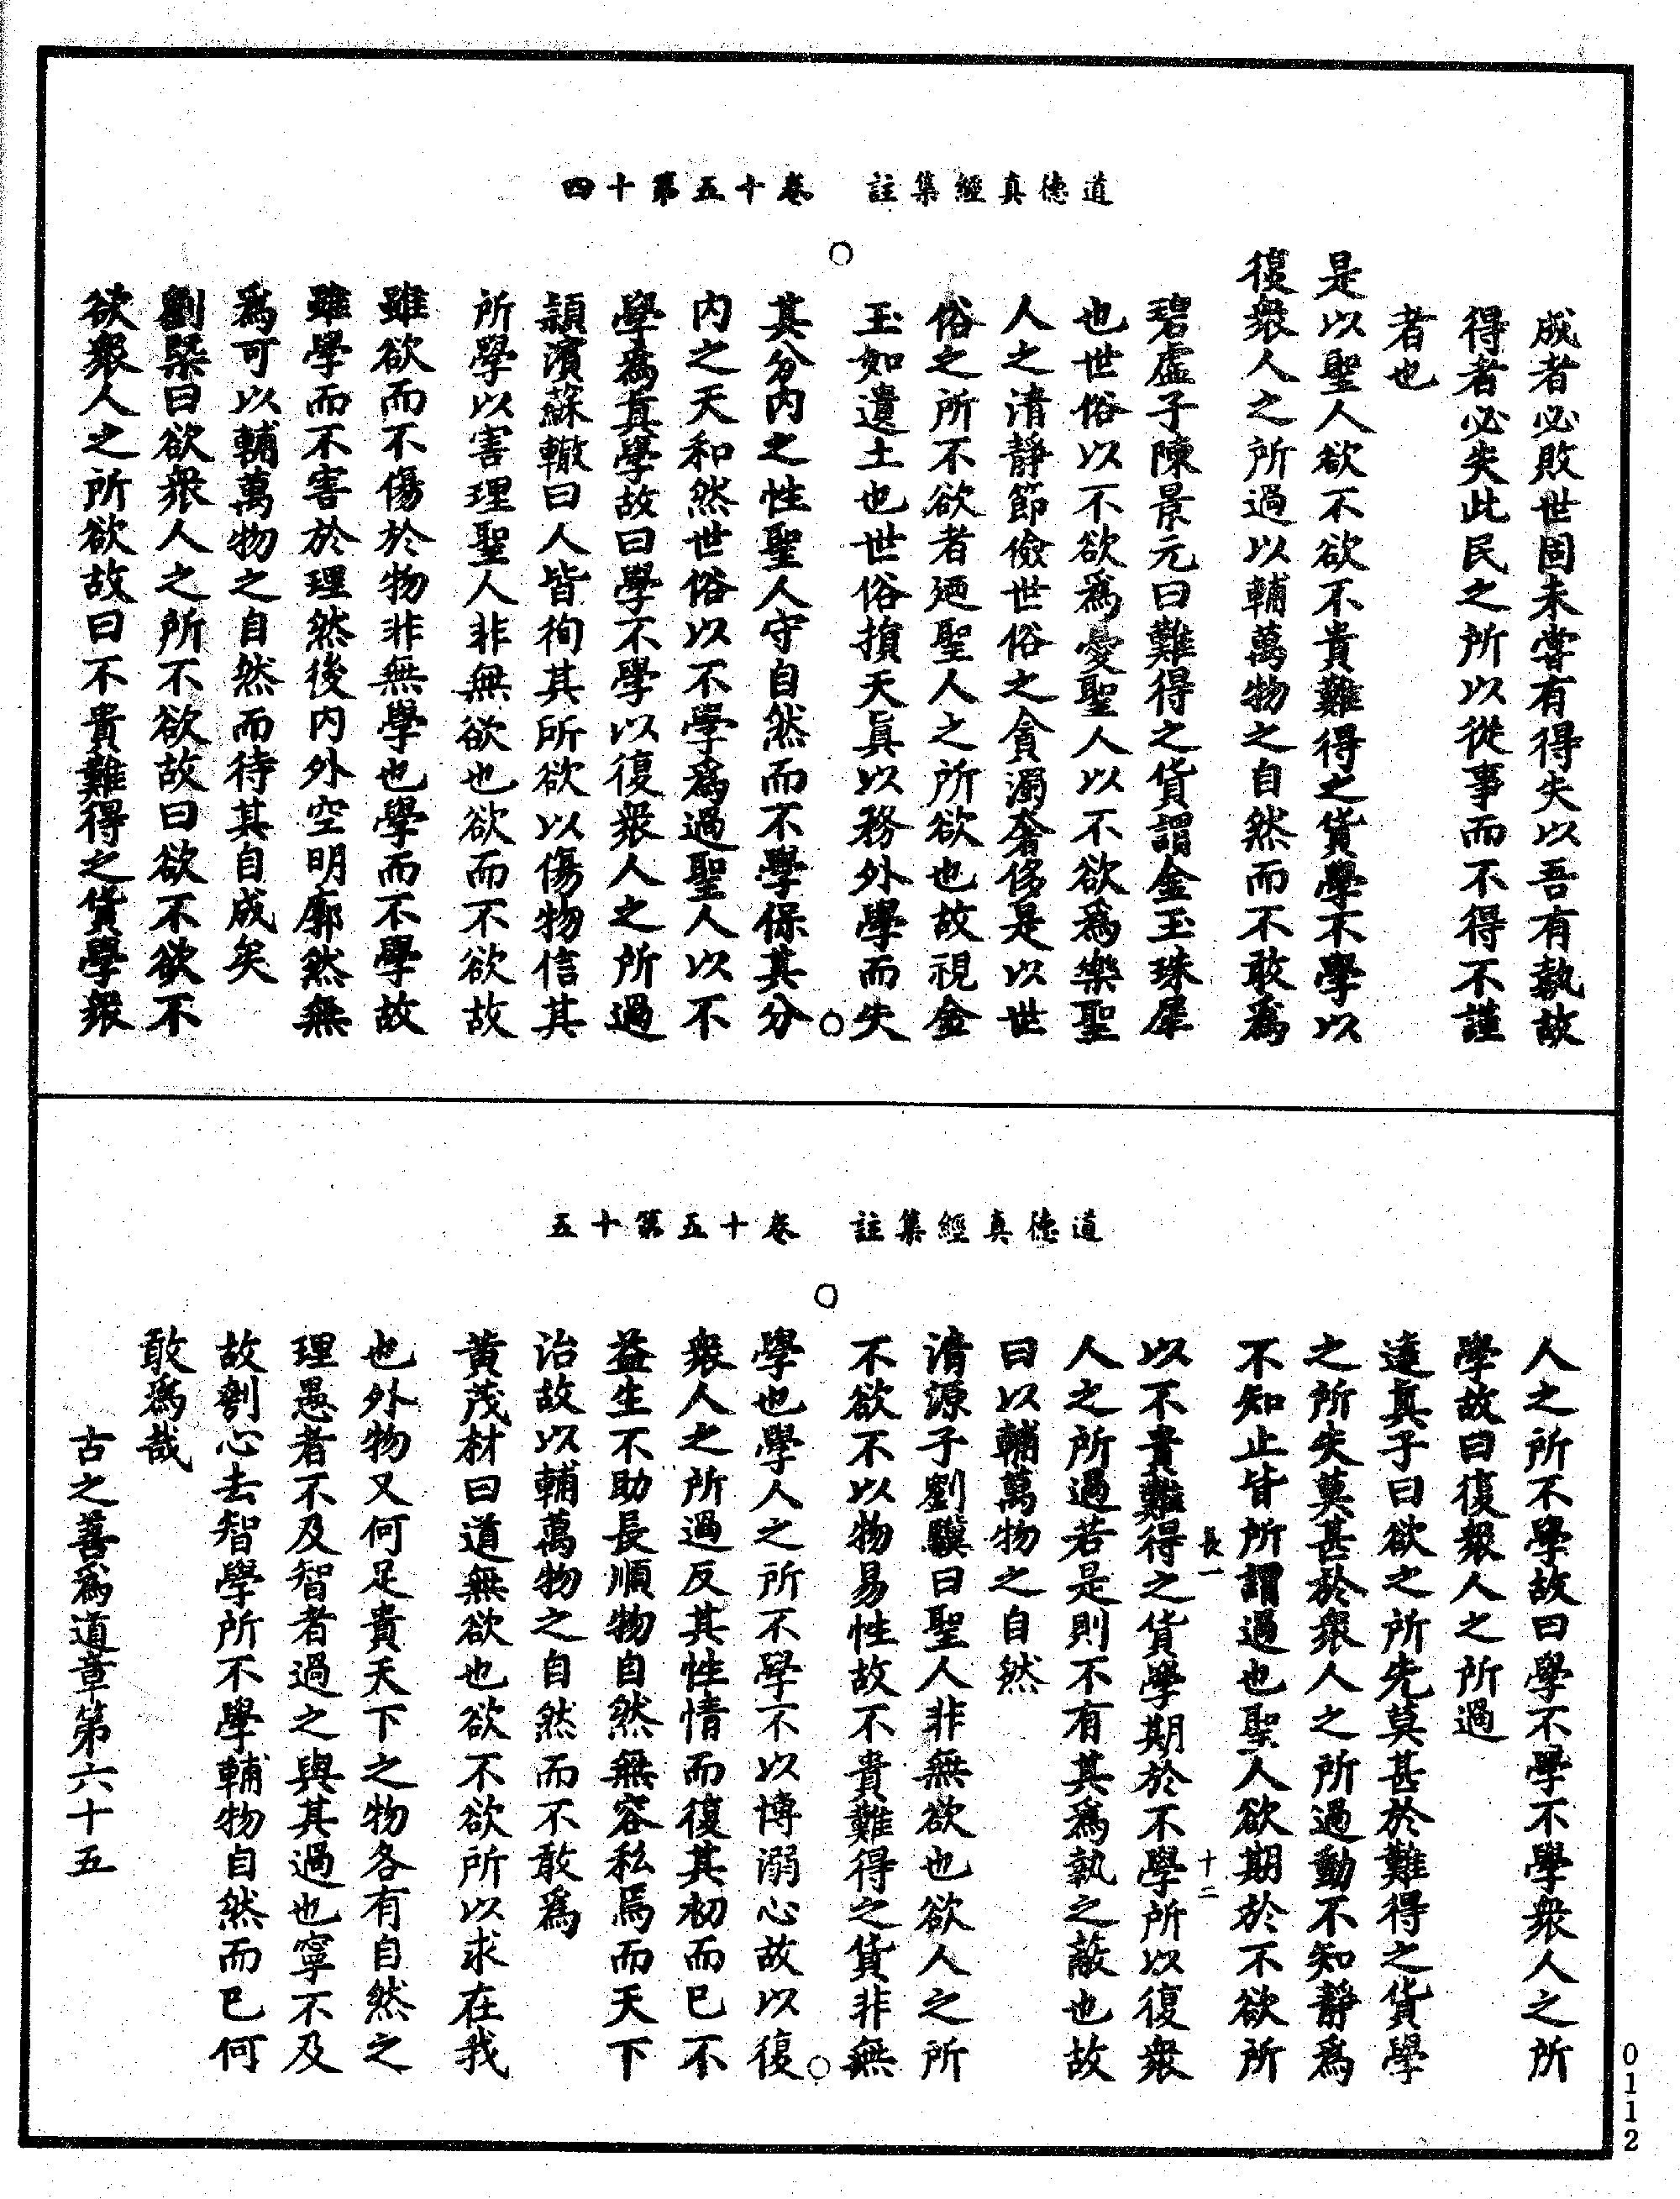 道德真經集註　卷十五第十四
成者必敗世固未嘗有得失以吾有執故
得者必失此民之所以從事而不得不謹
者也
是以聖人欲不欲不貴難得之貨學不學以
復衆人之所過以輔萬物之自然而不敢爲
碧虛子陳景元曰難得之貨謂金玉珠犀
也世俗以不欲爲憂聖人以不欲爲樂聖
人之清靜節儉世俗之貪溺奢侈是以世
俗之所不欲者廼聖人之所欲也故視金
玉如遺土也世俗損天真以務外學而失
其分內之性聖人守自然而不學保其分
內之天和然世俗以不學爲過聖人以不
學爲真學故曰學不學以復衆人之所過
頴濱蘇轍曰人皆徇其所欲以傷物信其
所學以害理聖人非無欲也欲而不欲故
雖欲而不傷於物非無學也學而不學故
雖學而不害於理然後內外空明廓然無
爲可以輔萬物之自然而待其自成矣
劉槩曰欲衆人之所不欲故曰欲不欲不
欲衆人之所欲故曰不貴難得之貨學衆
道德真經集註　卷十五第十五
人之所不學故曰學不學不學衆人之所
學故曰復衆人之所過
達真子曰欲之所先莫甚於難得之貨學
之所失莫甚於衆人之所過動不知靜爲
不知止皆所謂過也聖人欲期於不欲所
長一　十二
以不貴難得之貨學期於不學所以復衆
人之所過若是則不有其爲執之蔽也故
曰以輔萬物之自然
清源子劉驥曰聖人非無欲也欲人之所
不欲不以物易性故不貴難得之貨非無
學也學人之所不學不以博溺心故以復
衆人之所過反其性情而復其初而已不
益生不助長順物自然無容私焉而天下
治故以輔萬物之自然而不敢爲
黃茂材曰道無欲也欲不欲所以求在我
也外物又何足貴天下之物各有自然之
理愚者不及智者過之與其過也寧不及
故刳心去智學所不學輔物自然而已何
敢爲哉
古之善爲道章第六十五
0112